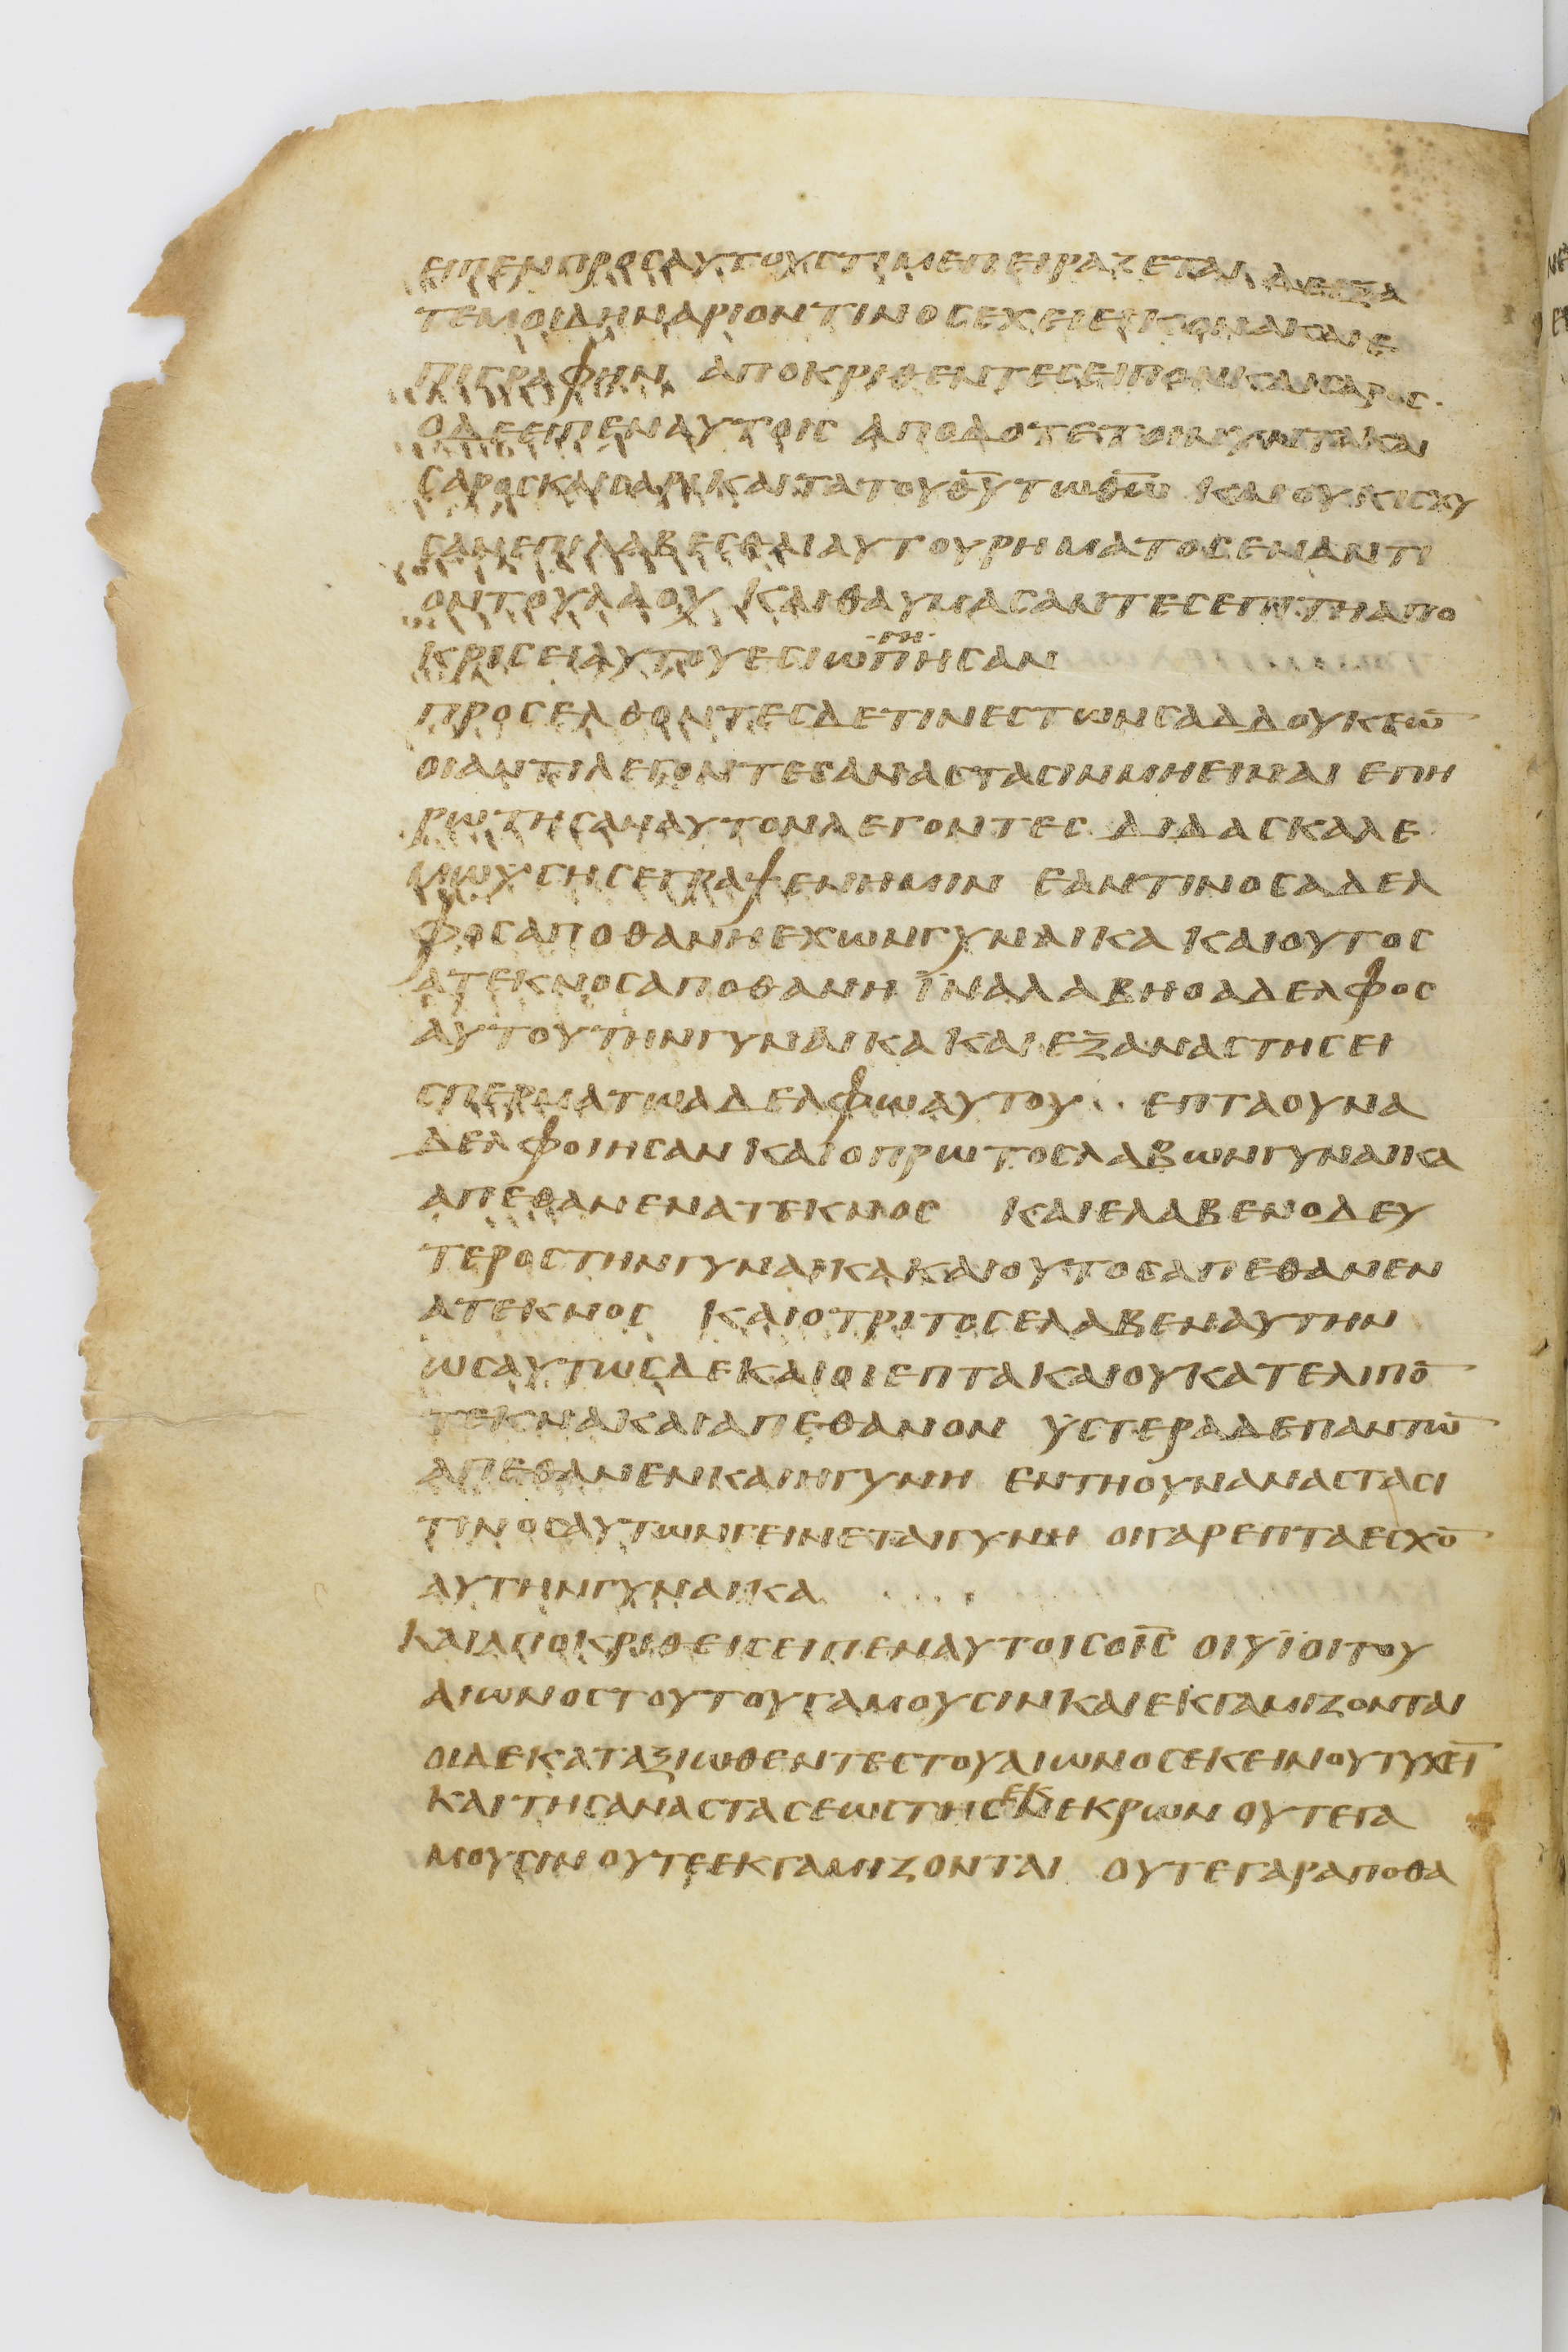 ειπενπροσαυτουστιμεπειραζεται δειξα
τεμοιδηναριοντινοσεχειεικονακαιε
πιγραφην αποκριθεντεσειπονκαισαροσ
οδεειπεναυτοισ αποδοτετοινυντακαι
σαροσκαισαρικαιτατουθ̅υ̅τωθ̅ω̅ καιουκισχυ
σανεπιλαβεσθαιαυτουρηματοσεναντι
οντουλαου καιθαυμασαντεσεπιτηαπο
κρισειαυτουεσιωπησαν
προσελθοντεσδετινεστωνσαδδουκεω̅
οιαντιλεγοντεσαναστασινμηειναι επη
ρωτησαναυτονλεγοντεσ διδασκαλε
μωυσησεγραψενημιν εαντινοσαδελ
φοσαποθανηεχωνγυναικα καιουτοσ
ατεκνοσαποθανη ϊναλαβηοαδελφοσ
αυτουτηνγυναικα καιεξαναστησει
σπερματωαδελφωαυτου επταουνα
δελφοιησαν καιοπρωτοσλαβωνγυναικα
απεθανενατεκνοσ καιελαβενοδευ
τεροστηνγυναικακαιουτοσαπεθανεν
ατεκνοσ καιοτριτοσελαβεναυτην
ωσαυτωσδεκαιοιεπτακαιουκατελιπο̅
τεκνακαιαπεθανον ϋστεραδεπαντω̅
απεθανενκαιηγυνη εντηουναναστασι
τινοσαυτωνγεινεταιγυνη οιγαρεπταεσχο̅
αυτηνγυναικα
καιαποκριθεισειπεναυτοισοι̅σ̅ οιϋϊοιτου
αιωνοστουτουγαμουσινκαιεκγαμιζονται
οιδεκαταξιωθεντεστουαιωνοσεκεινουτυχει̅
καιτησαναστασεωστησεκνεκρων ουτεγα
μουσιν ουτεεκγαμιζονται ουτεγαραποθα